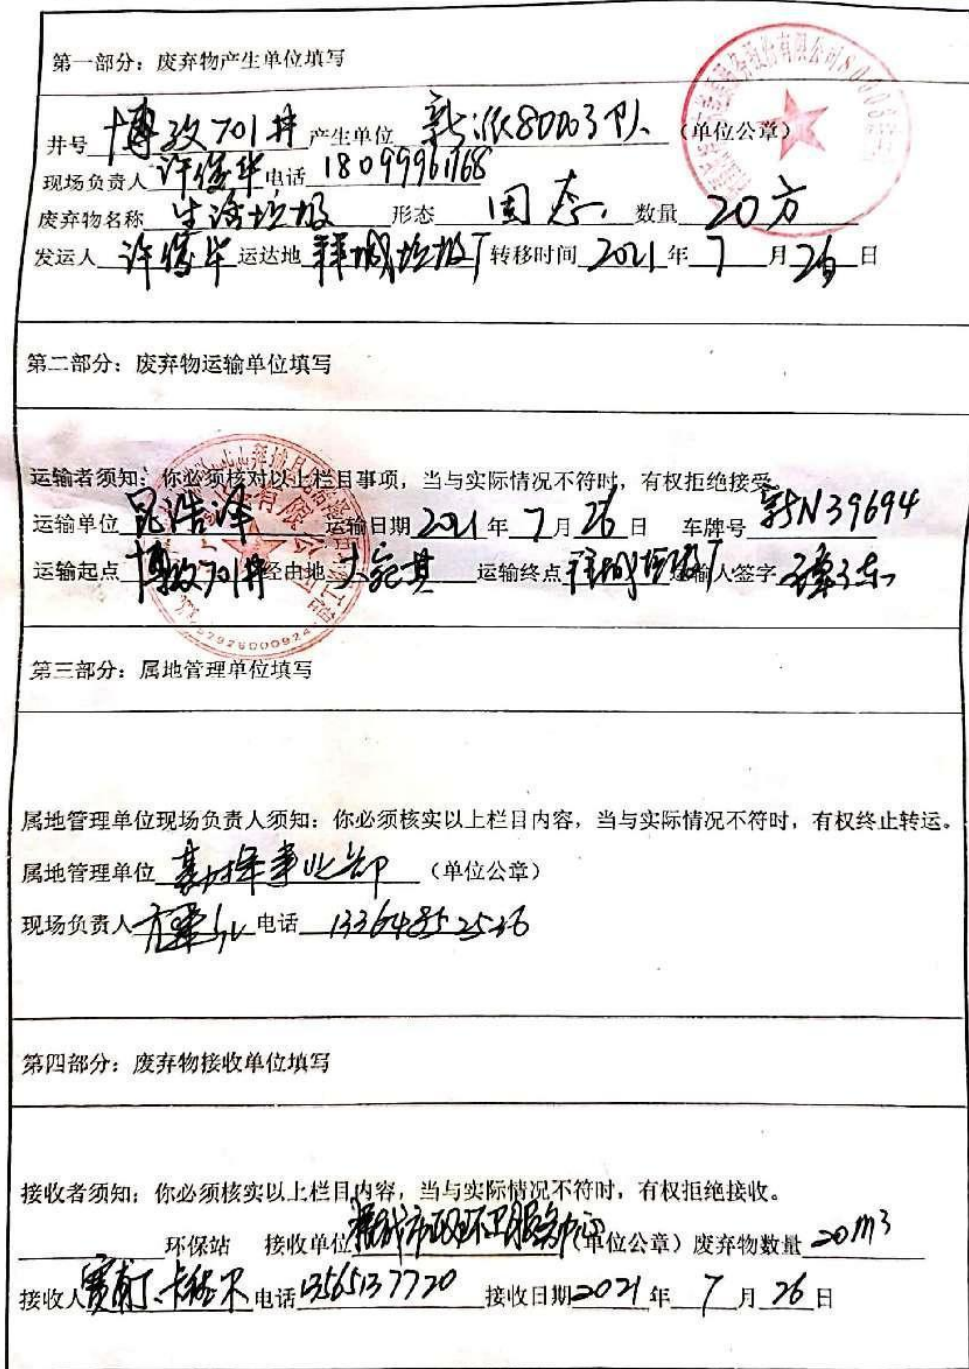 第一部分：废弃物产生单位填写
井号 博孜701井 产生单位 新派80003队 （单位公章）
现场负责人 许俊华 电话 18099961168
废弃物名称 生活垃圾 形态 固态 数量 20方
发运人 许俊华 运达地 拜城垃圾厂 转移时间 2021 年 7 月 26 日
第二部分：废弃物运输单位填写
运输者须知：你必须核对以上栏目事项，当与实际情况不符时，有权拒绝接受。
运输单位 昆浩泽 运输日期 2021 年 7 月 26 日 车牌号 新N39694
运输起点 博孜701井 经由地 大宛其 运输终点 拜城垃圾厂 运输人签字
第三部分：属地管理单位填写
属地管理单位现场负责人须知：你必须核实以上栏目内容，当与实际情况不符时，有权终止转运。
属地管理单位 事业部 （单位公章）
现场负责人 电话 13364852526
第四部分：废弃物接收单位填写
接收者须知：你必须核实以上栏目内容，当与实际情况不符时，有权拒绝接收。
环保站 接收单位 拜城市政环卫服务中心 （单位公章）废弃物数量 20m³
接收人 电话 13565137720 接收日期 2021 年 7 月 26 日